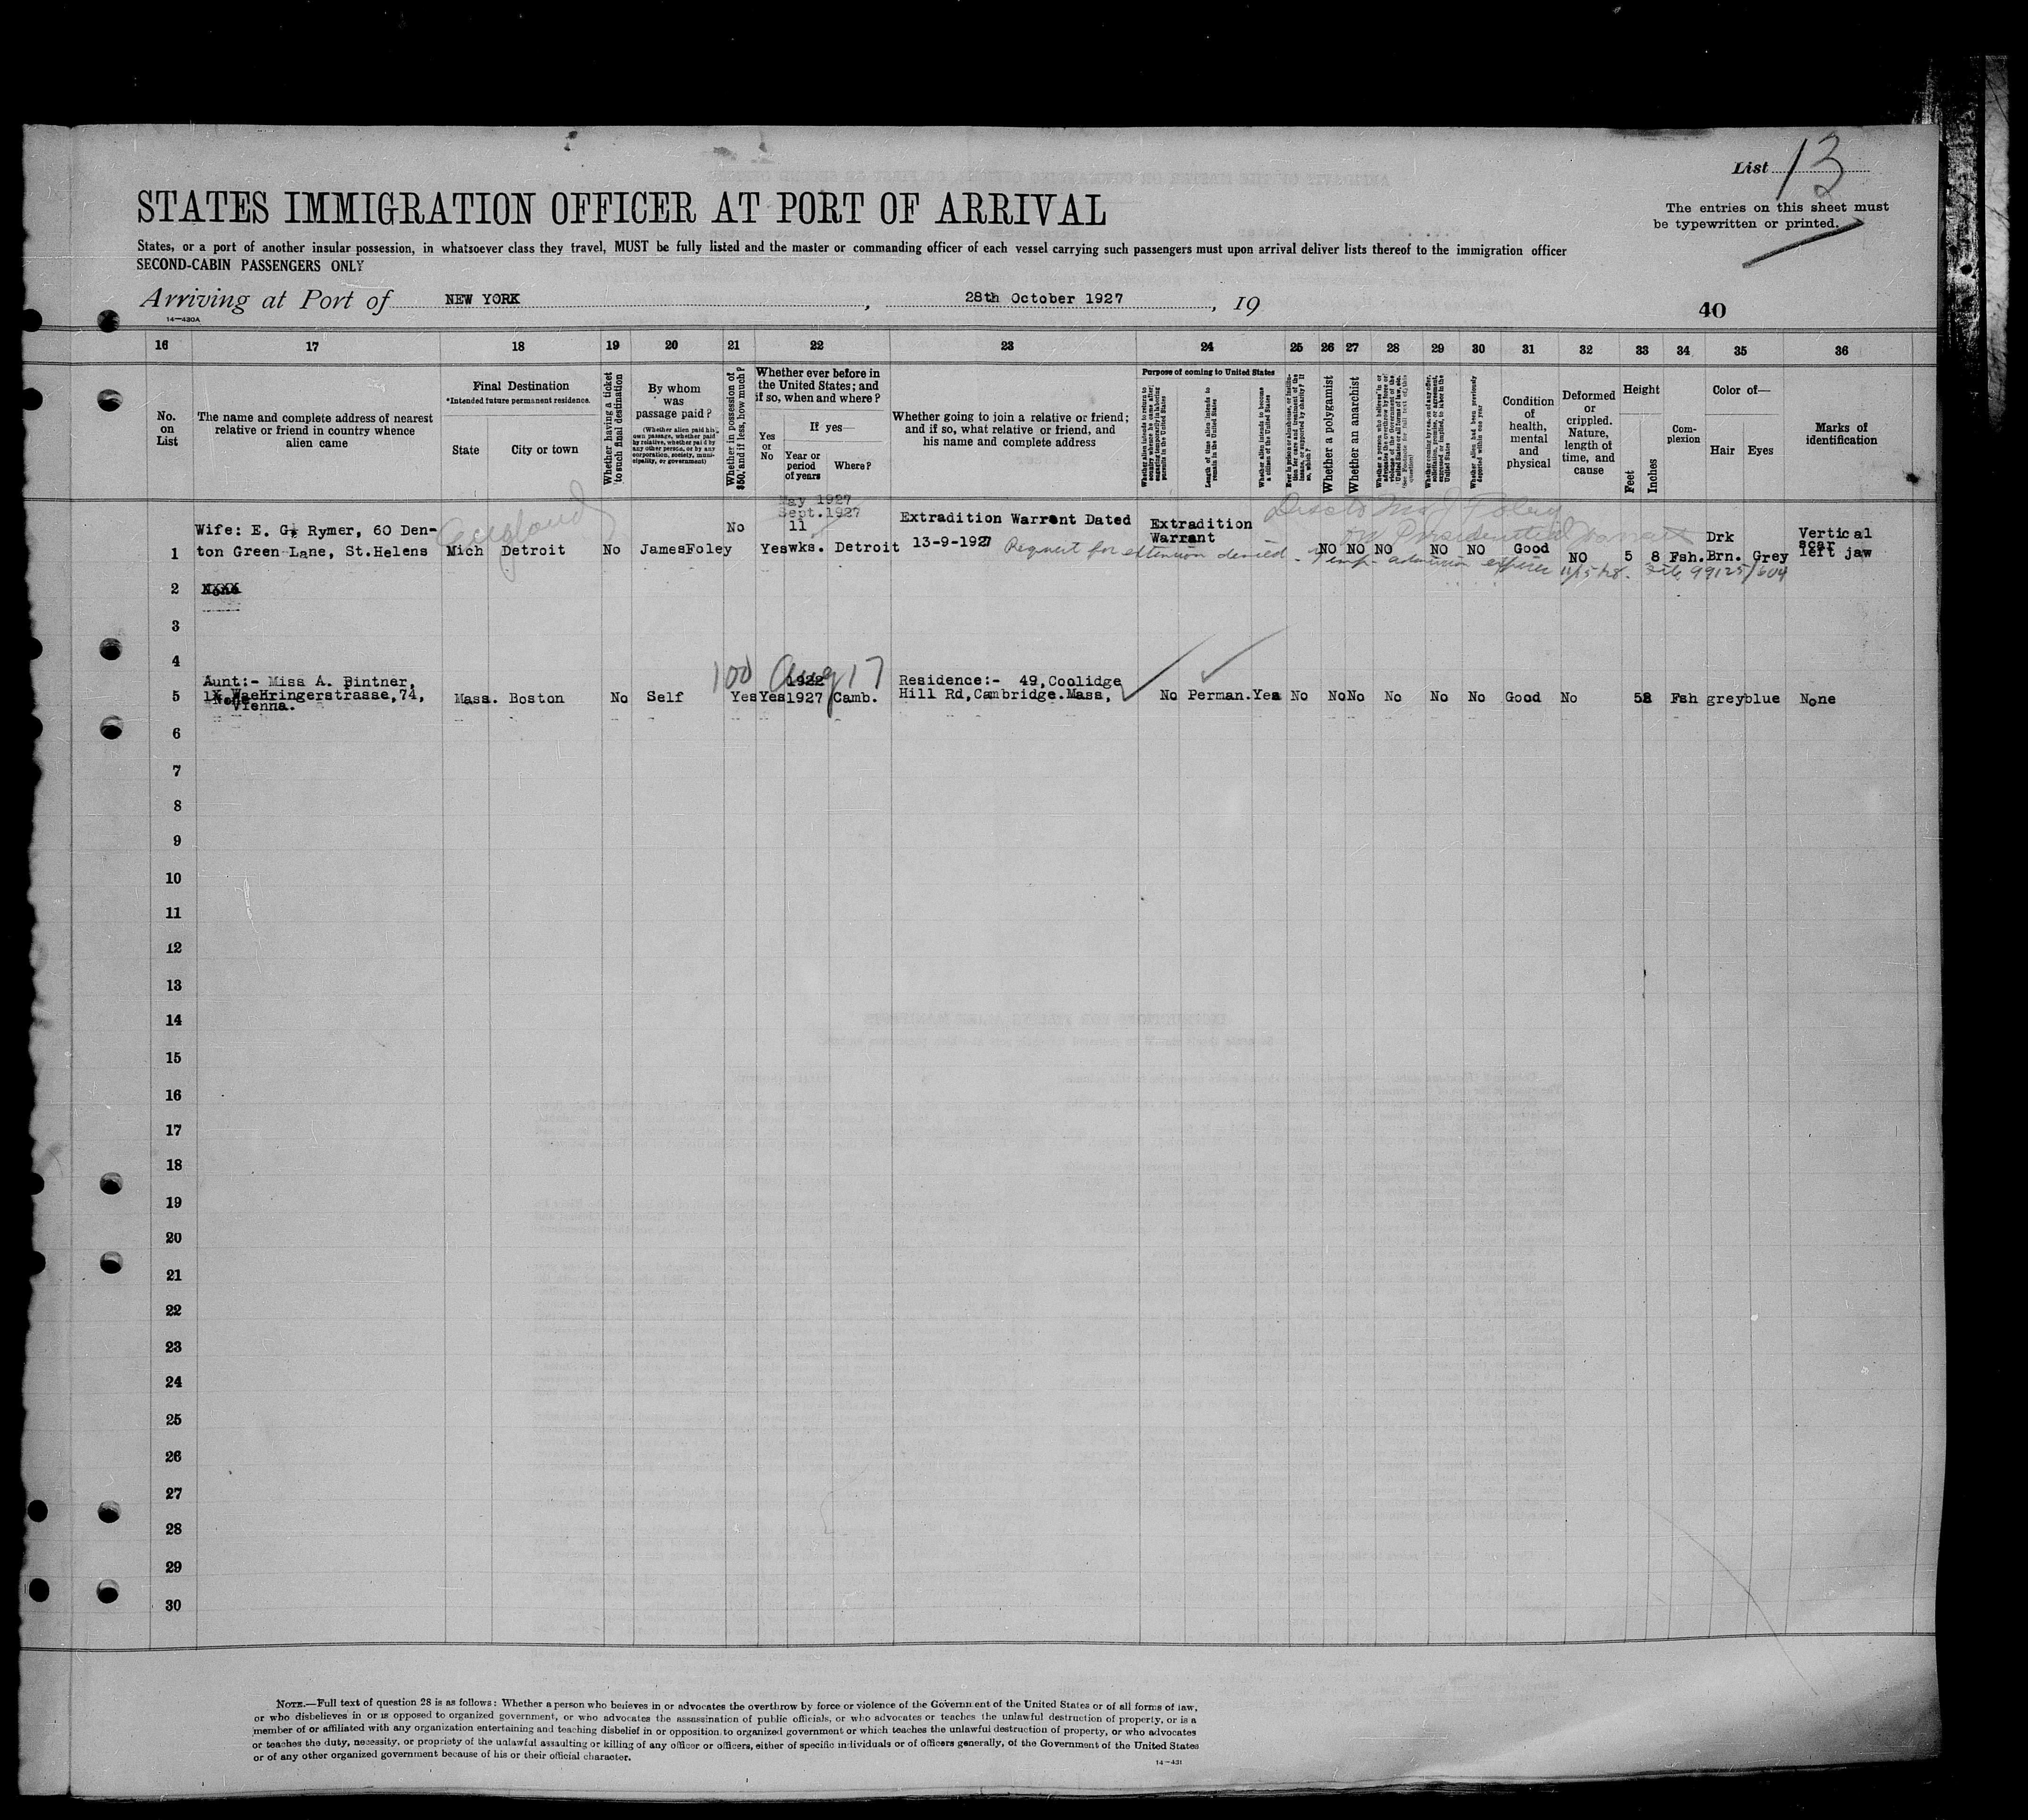 List 13
STATES IMMIGRATION OFFICER AT PORT OF ARRIVAL
The entries on this sheet must
be typewritten or printed.
States, or a port of another insular possession, in whatsoever class they travel, MUST be fully listed and the master or commanding officer of each vessel carrying such passengers must upon arrival deliver lists thereof to the immigration officer
SECOND-CABIN PASSENGERS ONLY
Arriving at Port of NEW YORK, 28th October 1927, 19
14-430A
40
16 17 18 19 20 21 22 23 24 25 26 27 28 29 30 31 32 33 34 35 36
No. on List
The name and complete address of nearest relative or friend in country whence alien came
Final Destination
*Intended future permanent residence.
State
City or town
Whether having a ticket to such final destination
By whom was passage paid?
(Whether alien paid his own passage, whether paid by relative, whether paid by any other person, or by any corporation, society, municipality, or government)
Whether in possession of $50, and if less, how much?
Whether ever before in the United States; and if so, when and where?
Yes or No
If yes—
Year or period of years
Where?
Whether going to join a relative or friend; and if so, what relative or friend, and his name and complete address
Purpose of coming to United States
Length of time alien intends to remain in the United States
Whether alien intends to become a citizen of the United States
Whether a polygamist
Whether an anarchist
Whether alien had been previously deported within one year
Condition of health, mental and physical
Deformed or crippled. Nature, length of time, and cause
Height
Feet
Inches
Complexion
Color of—
Hair
Eyes
Marks of identification
May 1927
Sept.1927
11
Wife: E. G. Rymer, 60 Den-
England
No
Extradition Warrant Dated
Extradition
Warrant
Disc to Mr J Foley
on Presidential Warrant
Drk
Vertical
scar
1 ton Green Lane, St.Helens Mich Detroit No JamesFoley Yes wks. Detroit 13-9-1927 NO NO NO NO NO Good NO 5 8 Fsh. Brn. Grey left jaw
Request for extension denied - Temp. admission expires 11/15/28. File 99125/604
2
3
4
100 Aug 17
Aunt:- Miss A. Bintner,
1922
Residence:- 49,Coolidge
5 Waehringerstrasse,74, Mass. Boston No Self Yes Yes 1927 Camb. Hill Rd,Cambridge.Mass, No Perman. Yes No No No No No No Good No 5 8 Fsh grey blue None
Vienna.
6
7
8
9
10
11
12
13
14
15
16
17
18
19
20
21
22
23
24
25
26
27
28
29
30
NOTE.—Full text of question 28 is as follows: Whether a person who believes in or advocates the overthrow by force or violence of the Government of the United States or of all forms of law,
or who disbelieves in or is opposed to organized government, or who advocates the assassination of public officials, or who advocates or teaches the unlawful destruction of property, or is a
member of or affiliated with any organization entertaining and teaching disbelief in or opposition to organized government or which teaches the unlawful destruction of property, or who advocates
or teaches the duty, necessity, or propriety of the unlawful assaulting or killing of any officer or officers, either of specific individuals or of officers generally, of the Government of the United States
or of any other organized government because of his or their official character.
14-431